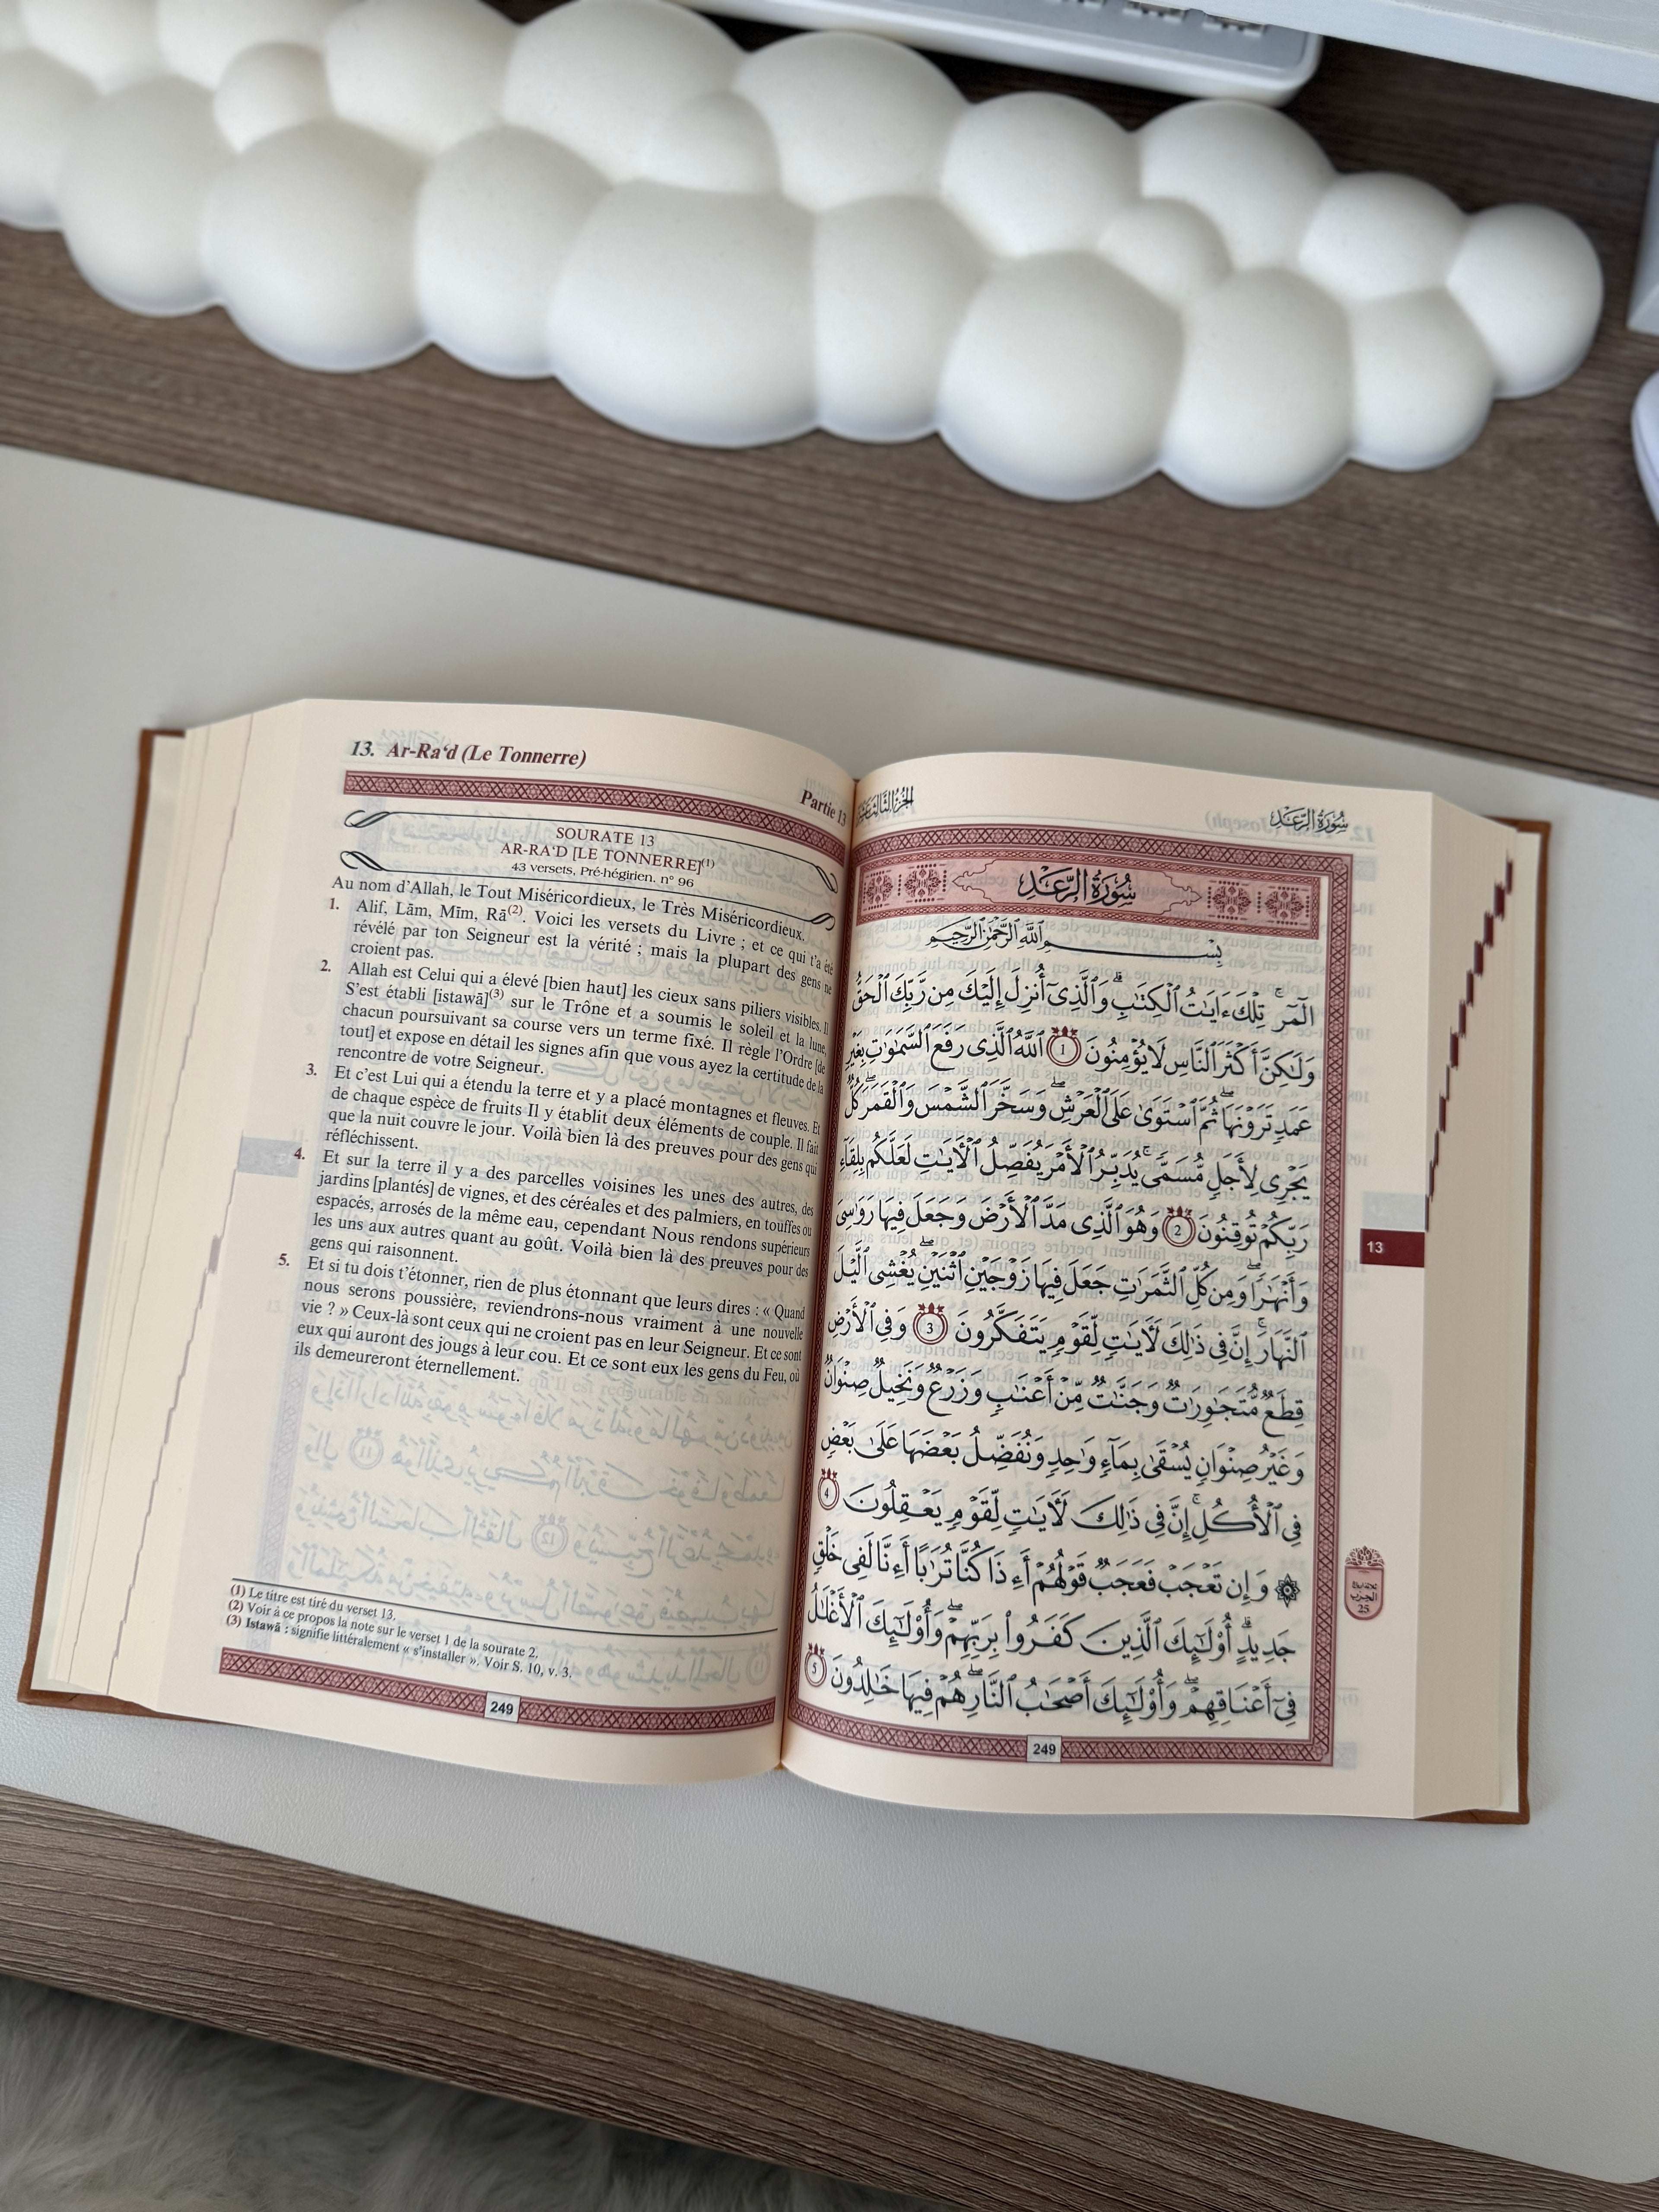 13. Ar-Ra‘d (Le Tonnerre)
Partie 13
SOURATE 13
AR-RA‘D [LE TONNERRE](1)
43 versets, Pré-hégirien. n° 96
Au nom d’Allah, le Tout Miséricordieux, le Très Miséricordieux.
1. Alif, Lām, Mīm, Rā(2). Voici les versets du Livre ; et ce qui t’a été
révélé par ton Seigneur est la vérité ; mais la plupart des gens ne
croient pas.
2. Allah est Celui qui a élevé [bien haut] les cieux sans piliers visibles. Il
S’est établi [istawā](3) sur le Trône et a soumis le soleil et la lune,
chacun poursuivant sa course vers un terme fixé. Il règle l’Ordre [de
tout] et expose en détail les signes afin que vous ayez la certitude de la
rencontre de votre Seigneur.
3. Et c’est Lui qui a étendu la terre et y a placé montagnes et fleuves. Et
de chaque espèce de fruits Il y établit deux éléments de couple. Il fait
que la nuit couvre le jour. Voilà bien là des preuves pour des gens qui
réfléchissent.
4. Et sur la terre il y a des parcelles voisines les unes des autres, des
jardins [plantés] de vignes, et des céréales et des palmiers, en touffes ou
espacés, arrosés de la même eau, cependant Nous rendons supérieurs
les uns aux autres quant au goût. Voilà bien là des preuves pour des
gens qui raisonnent.
5. Et si tu dois t’étonner, rien de plus étonnant que leurs dires : « Quand
nous serons poussière, reviendrons-nous vraiment à une nouvelle
vie ? » Ceux-là sont ceux qui ne croient pas en leur Seigneur. Et ce sont
eux qui auront des jougs à leur cou. Et ce sont eux les gens du Feu, où
ils demeureront éternellement.
(1) Le titre est tiré du verset 13.
(2) Voir à ce propos la note sur le verset 1 de la sourate 2.
(3) Istawā : signifie littéralement « s’installer ». Voir S. 10, v. 3.
249
سُورَةُ الرَّعْدِ
الجُزْءُ الثَّالِثَ عَشَرَ
سُورَةُ الرَّعْدِ
بِسْمِ ٱللَّهِ ٱلرَّحْمَٰنِ ٱلرَّحِيمِ
الٓمٓرۚ تِلْكَ ءَايَٰتُ ٱلْكِتَٰبِۗ وَٱلَّذِىٓ أُنزِلَ إِلَيْكَ مِن رَّبِّكَ ٱلْحَقُّ
وَلَٰكِنَّ أَكْثَرَ ٱلنَّاسِ لَا يُؤْمِنُونَ ١ ٱللَّهُ ٱلَّذِى رَفَعَ ٱلسَّمَٰوَٰتِ بِغَيْرِ
عَمَدٍ تَرَوْنَهَاۖ ثُمَّ ٱسْتَوَىٰ عَلَى ٱلْعَرْشِۖ وَسَخَّرَ ٱلشَّمْسَ وَٱلْقَمَرَۖ كُلٌّ
يَجْرِى لِأَجَلٍ مُّسَمًّىۚ يُدَبِّرُ ٱلْأَمْرَ يُفَصِّلُ ٱلْأَيَٰتِ لَعَلَّكُم بِلِقَآءِ
رَبِّكُمْ تُوقِنُونَ ٢ وَهُوَ ٱلَّذِى مَدَّ ٱلْأَرْضَ وَجَعَلَ فِيهَا رَوَٰسِىَ
وَأَنْهَٰرًاۖ وَمِن كُلِّ ٱلثَّمَرَٰتِ جَعَلَ فِيهَا زَوْجَيْنِ ٱثْنَيْنِۖ يُغْشِى ٱلَّيْلَ
ٱلنَّهَارَۚ إِنَّ فِى ذَٰلِكَ لَأَيَٰتٍ لِّقَوْمٍ يَتَفَكَّرُونَ ٣ وَفِى ٱلْأَرْضِ
قِطَعٌ مُّتَجَٰوِرَٰتٌ وَجَنَّٰتٌ مِّنْ أَعْنَٰبٍ وَزَرْعٌ وَنَخِيلٌ صِنْوَانٌ
وَغَيْرُ صِنْوَانٍ يُسْقَىٰ بِمَآءٍ وَٰحِدٍ وَنُفَضِّلُ بَعْضَهَا عَلَىٰ بَعْضٍ
فِى ٱلْأُكُلِۚ إِنَّ فِى ذَٰلِكَ لَأَيَٰتٍ لِّقَوْمٍ يَعْقِلُونَ ٤
۞ وَإِن تَعْجَبْ فَعَجَبٌ قَوْلُهُمْ أَءِذَا كُنَّا تُرَٰبًا أَءِنَّا لَفِى خَلْقٍ
جَدِيدٍۗ أُو۟لَٰٓئِكَ ٱلَّذِينَ كَفَرُوا۟ بِرَبِّهِمْۖ وَأُو۟لَٰٓئِكَ ٱلْأَغْلَٰلُ
فِىٓ أَعْنَاقِهِمْۖ وَأُو۟لَٰٓئِكَ أَصْحَٰبُ ٱلنَّارِۖ هُمْ فِيهَا خَٰلِدُونَ ٥
13
ثلاثة أرباع
الحزب
25
249